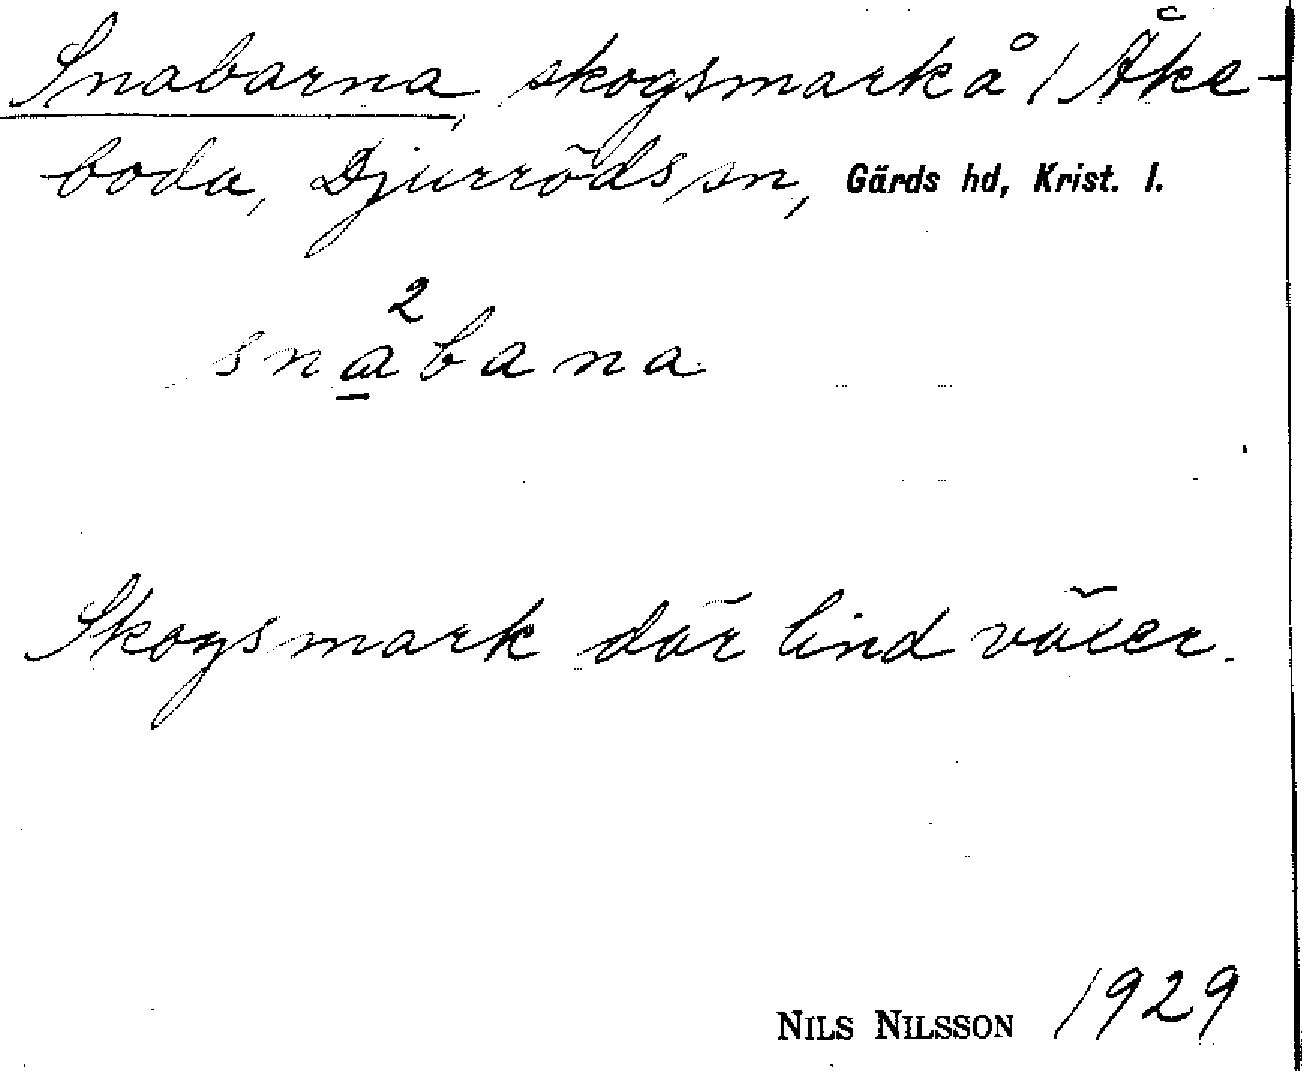 Snabarna, skogsmark å 1 Åke-
boda, Djurröds sn, Gärds hd, Krist. l.
2
snabana
Skogsmark där lind växer.
NILS NILSSON 1929